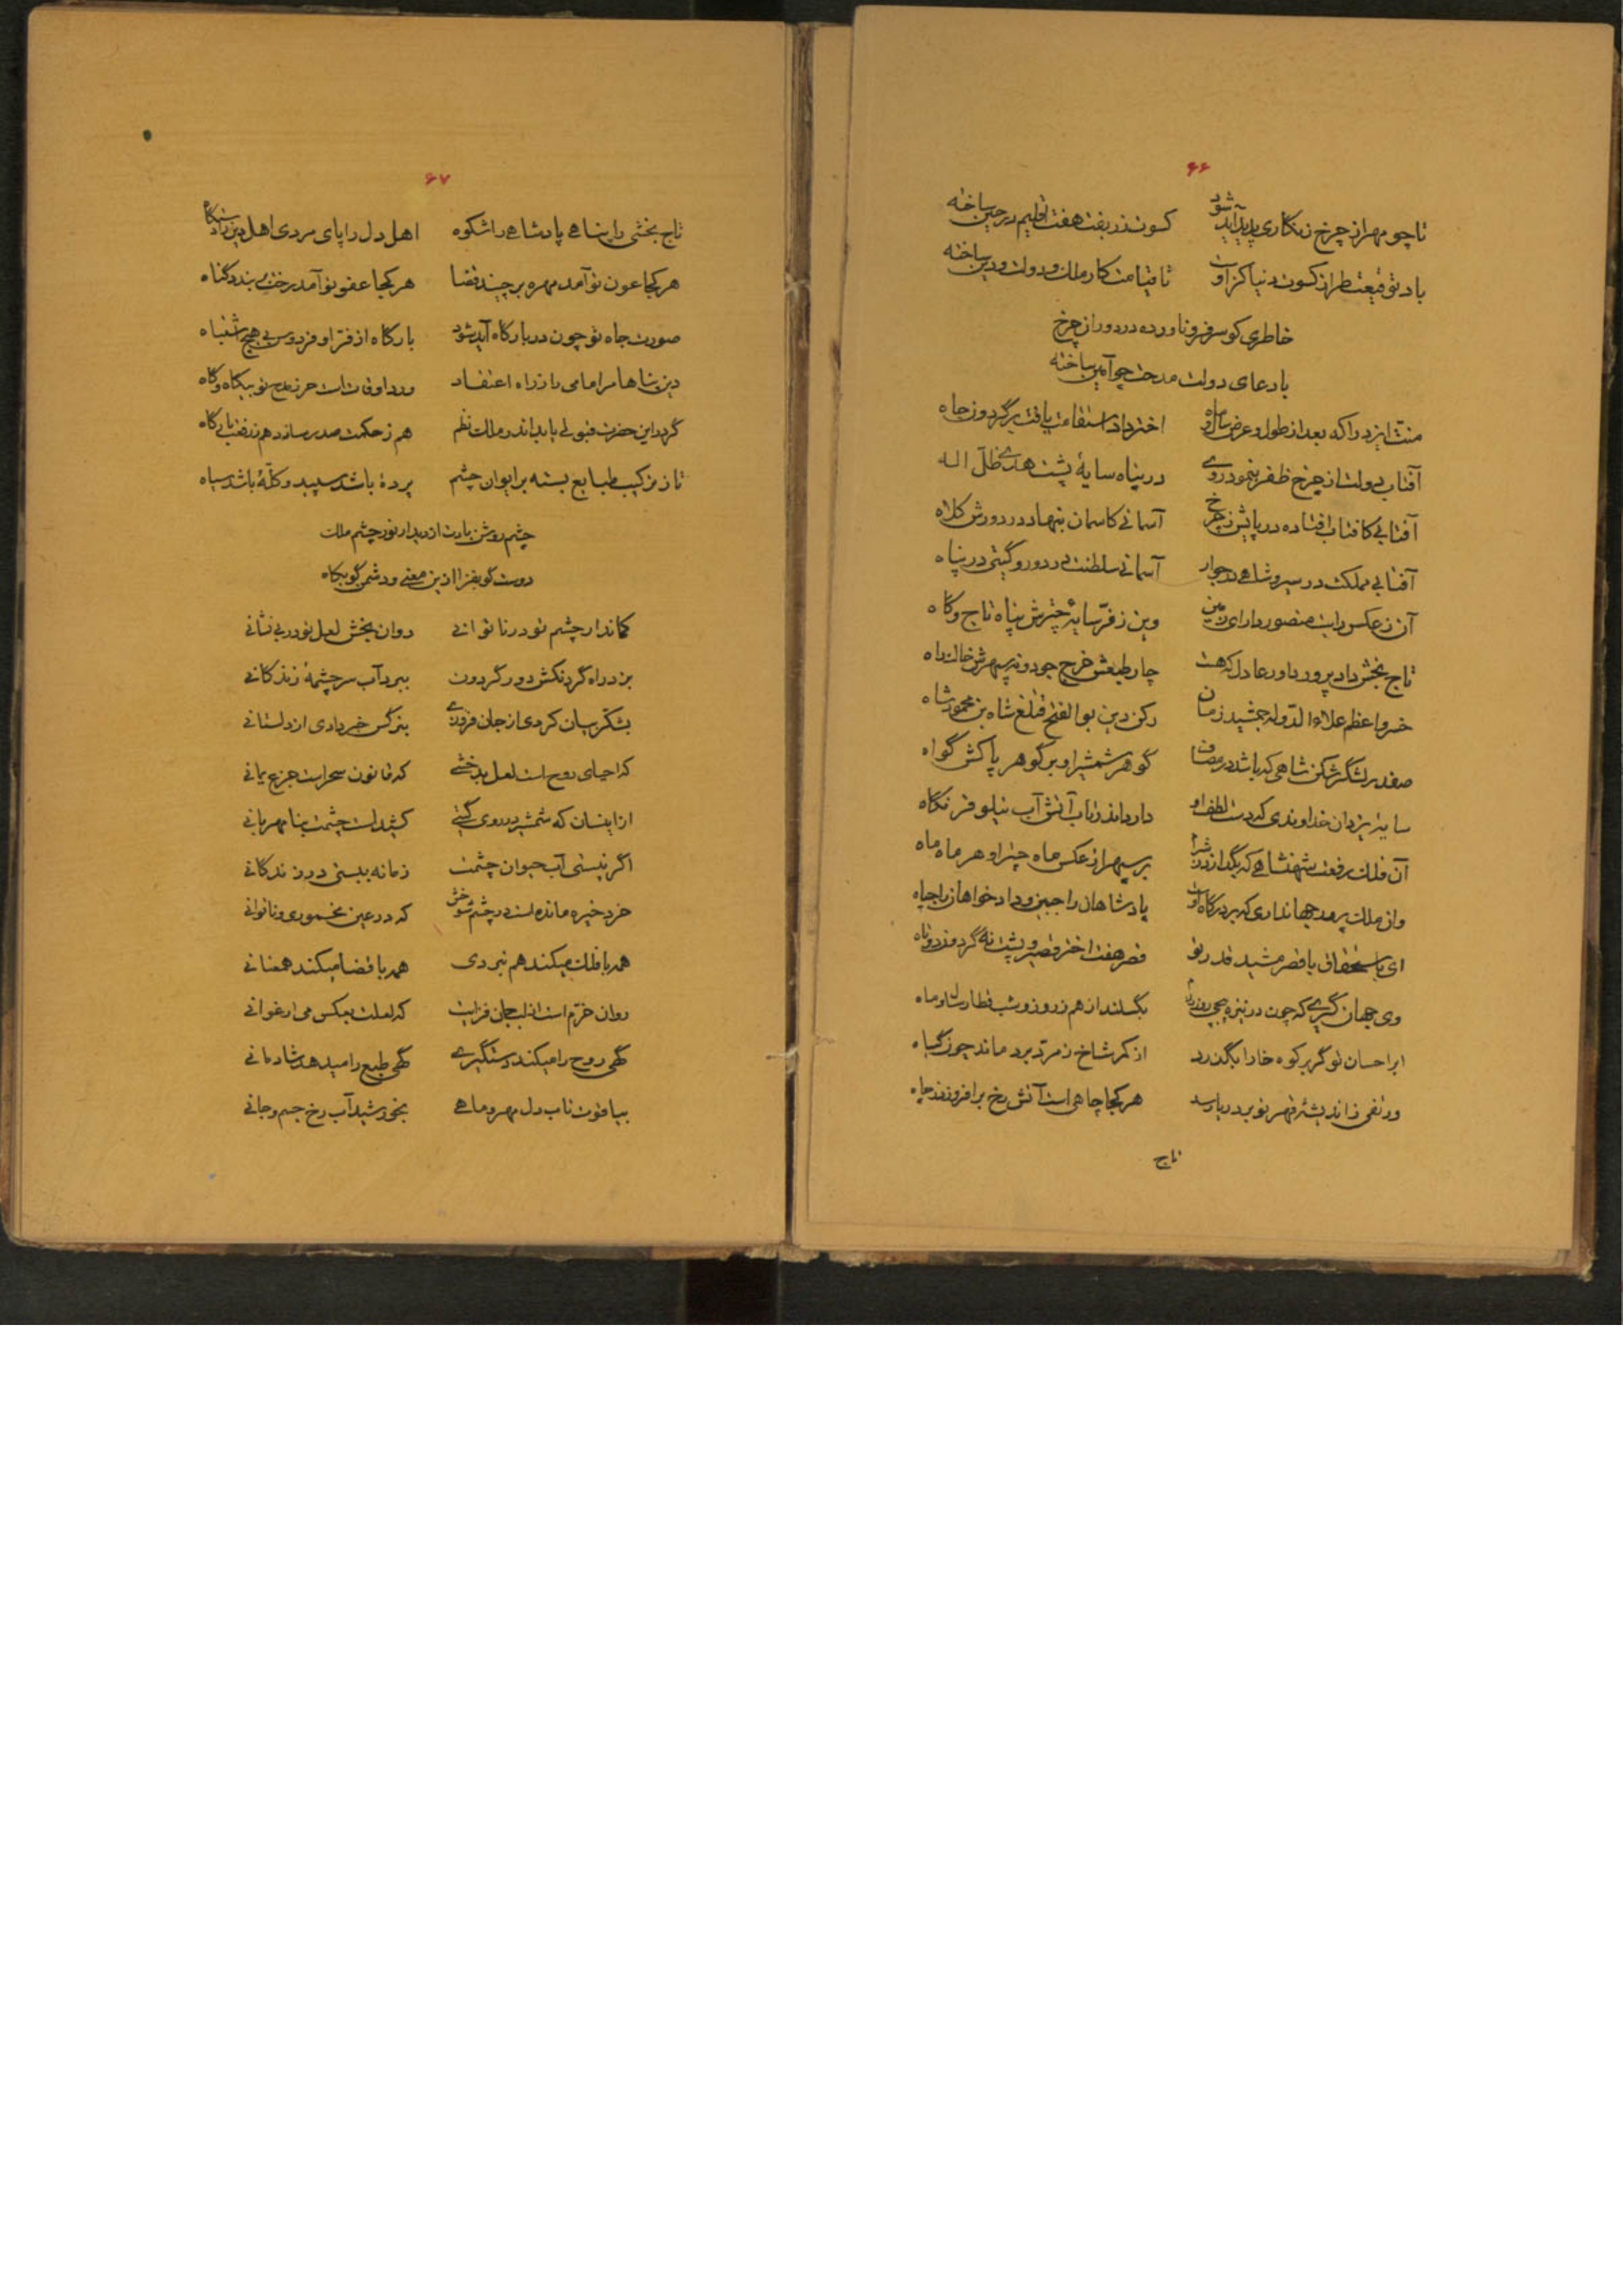 ۶۶
تا چو مهر از چرخ زنگاری پدید آید شود کسوت زربفت هفت اقلیم در چین ساخته
باد توقیعت طراز کسوت دنیا کز اوست تا قیامت کار ملک و دولت و دین ساخته
خاطری کو سر فرو ناورده در دور از چرخ
با دعای دولت مدحت چو آمین ساخته
منت ایزد را که بعد از طول و عرض سال و ماه اختر داد استقامت یافت بر گردون جاه
آفتاب دولت از چرخ ظفر بنمود روی در پناه سایهٔ پشت هدی ظل اله
آفتابی کافتاب افتاده در پایش ز چرخ آسمانی کاسمان بنهاد در دورش کلاه
آفتابی مملکت در سیر و شاهی در جوار آسمانی سلطنت در دور و گیتی در پناه
آن ز عکس رایت منصور دارای زمین وین ز فرّ سایهٔ چترش پناه تاج و گاه
تاج بخش داد پرور داور عادل که هست چار طبعش خرج جود و نه سپهرش خاک راه
خسرو اعظم علاء الدوله جمشید زمان رکن دین بو الفتح قتلغ شاه بن محمود شاه
صفدر لشگر شکن شاهی که باشد در مصاف گوهر شمشیر او بر گوهر پاکش گواه
سایهٔ یزدان خداوندی که دست لطف او دارد اندر تاب آتش آب نیلوفر نگاه
آن فلک رفعت شهنشاهی که بگدازد ز شرم بر سپهر از عکس ماه چتر او هر ماه ماه
وان ملک پرور جهانداری که بر درگاه اوست پادشاهان را جبین و دادخواهان را جباه
ای باستحقاق با قصر مشید قدر تو قصر هفت اختر قصیر و پشت نه گردون دوتاه
وی جهان گیری که چون در نیزه پیچی روز رزم بگسلند از هم ز روز و شب قطار سال و ماه
ابر احسان تو گر بر کوه خارا بگذرد از کمر شاخ زمرد بردماند چون گیاه
ور تفی ز اندیشهٔ قهر تو بر دریا رسد هر کجا چاهی است آتش رخ برافروزد ز چاه
تاج
۶۷
تاج بخشی را پناهی پادشاهی را شکوه اهل دل را پای مردی اهل دین را دستگاه
هر کجا عون تو آمد مهره برچیند قضا هر کجا عفو تو آمد رخت بر بندد گناه
صورت جاه تو چون در بارگاه آید شود بارگاه از فرّ او فردوس بی هیچ اشتباه
دین پناها مر امامی را ز راه اعتقاد ورد اوقات است حرز مدح تو بیگاه و گاه
گر در این حضرت قبولی یابد اندر ملک نظم هم ز حکمت صدر سازد هم ز رفعت بارگاه
تا ز ترکیب طبایع بسته بر ایوان چشم پرده باشد سپید و کلّهٔ باشد سیاه
چشم روشن بادت از دیدار نور چشم ملک
دوست گو بفزا ازین معنی و دشمن گو بکاه
کماندار چشم تو در ناتوانی روان بخش لعل تو در بی نشانی
بزد راه گردنکش دور گردون ببرد آب سر چشمهٔ زندگانی
بشکّر بیان کردی از جان فروزی بنرگس خبر دادی از دلستانی
که احیای روح است لعل بدخشی که قانون سحر است جزع یمانی
از اینسان که شمشیر در روی گیتی کشیده است چشمت بنا مهربانی
اگر نیستی آب حیوان چشمت زمانه ببستی در زندگانی
خرد خیره مانده است در چشم شوخش که در عین مخموری و ناتوانی
همه با فلک میکند هم نبردی همه با قضا میکند همعنانی
روان خرّم است از لب جان فزایت که لعلت بعکس می ارغوانی
گهی روح را میکند دستگیری گهی طبع را میدهد شادمانی
بیاقوت تاب دل مهر و ماهی بخورشید آب رخ جسم و جانی